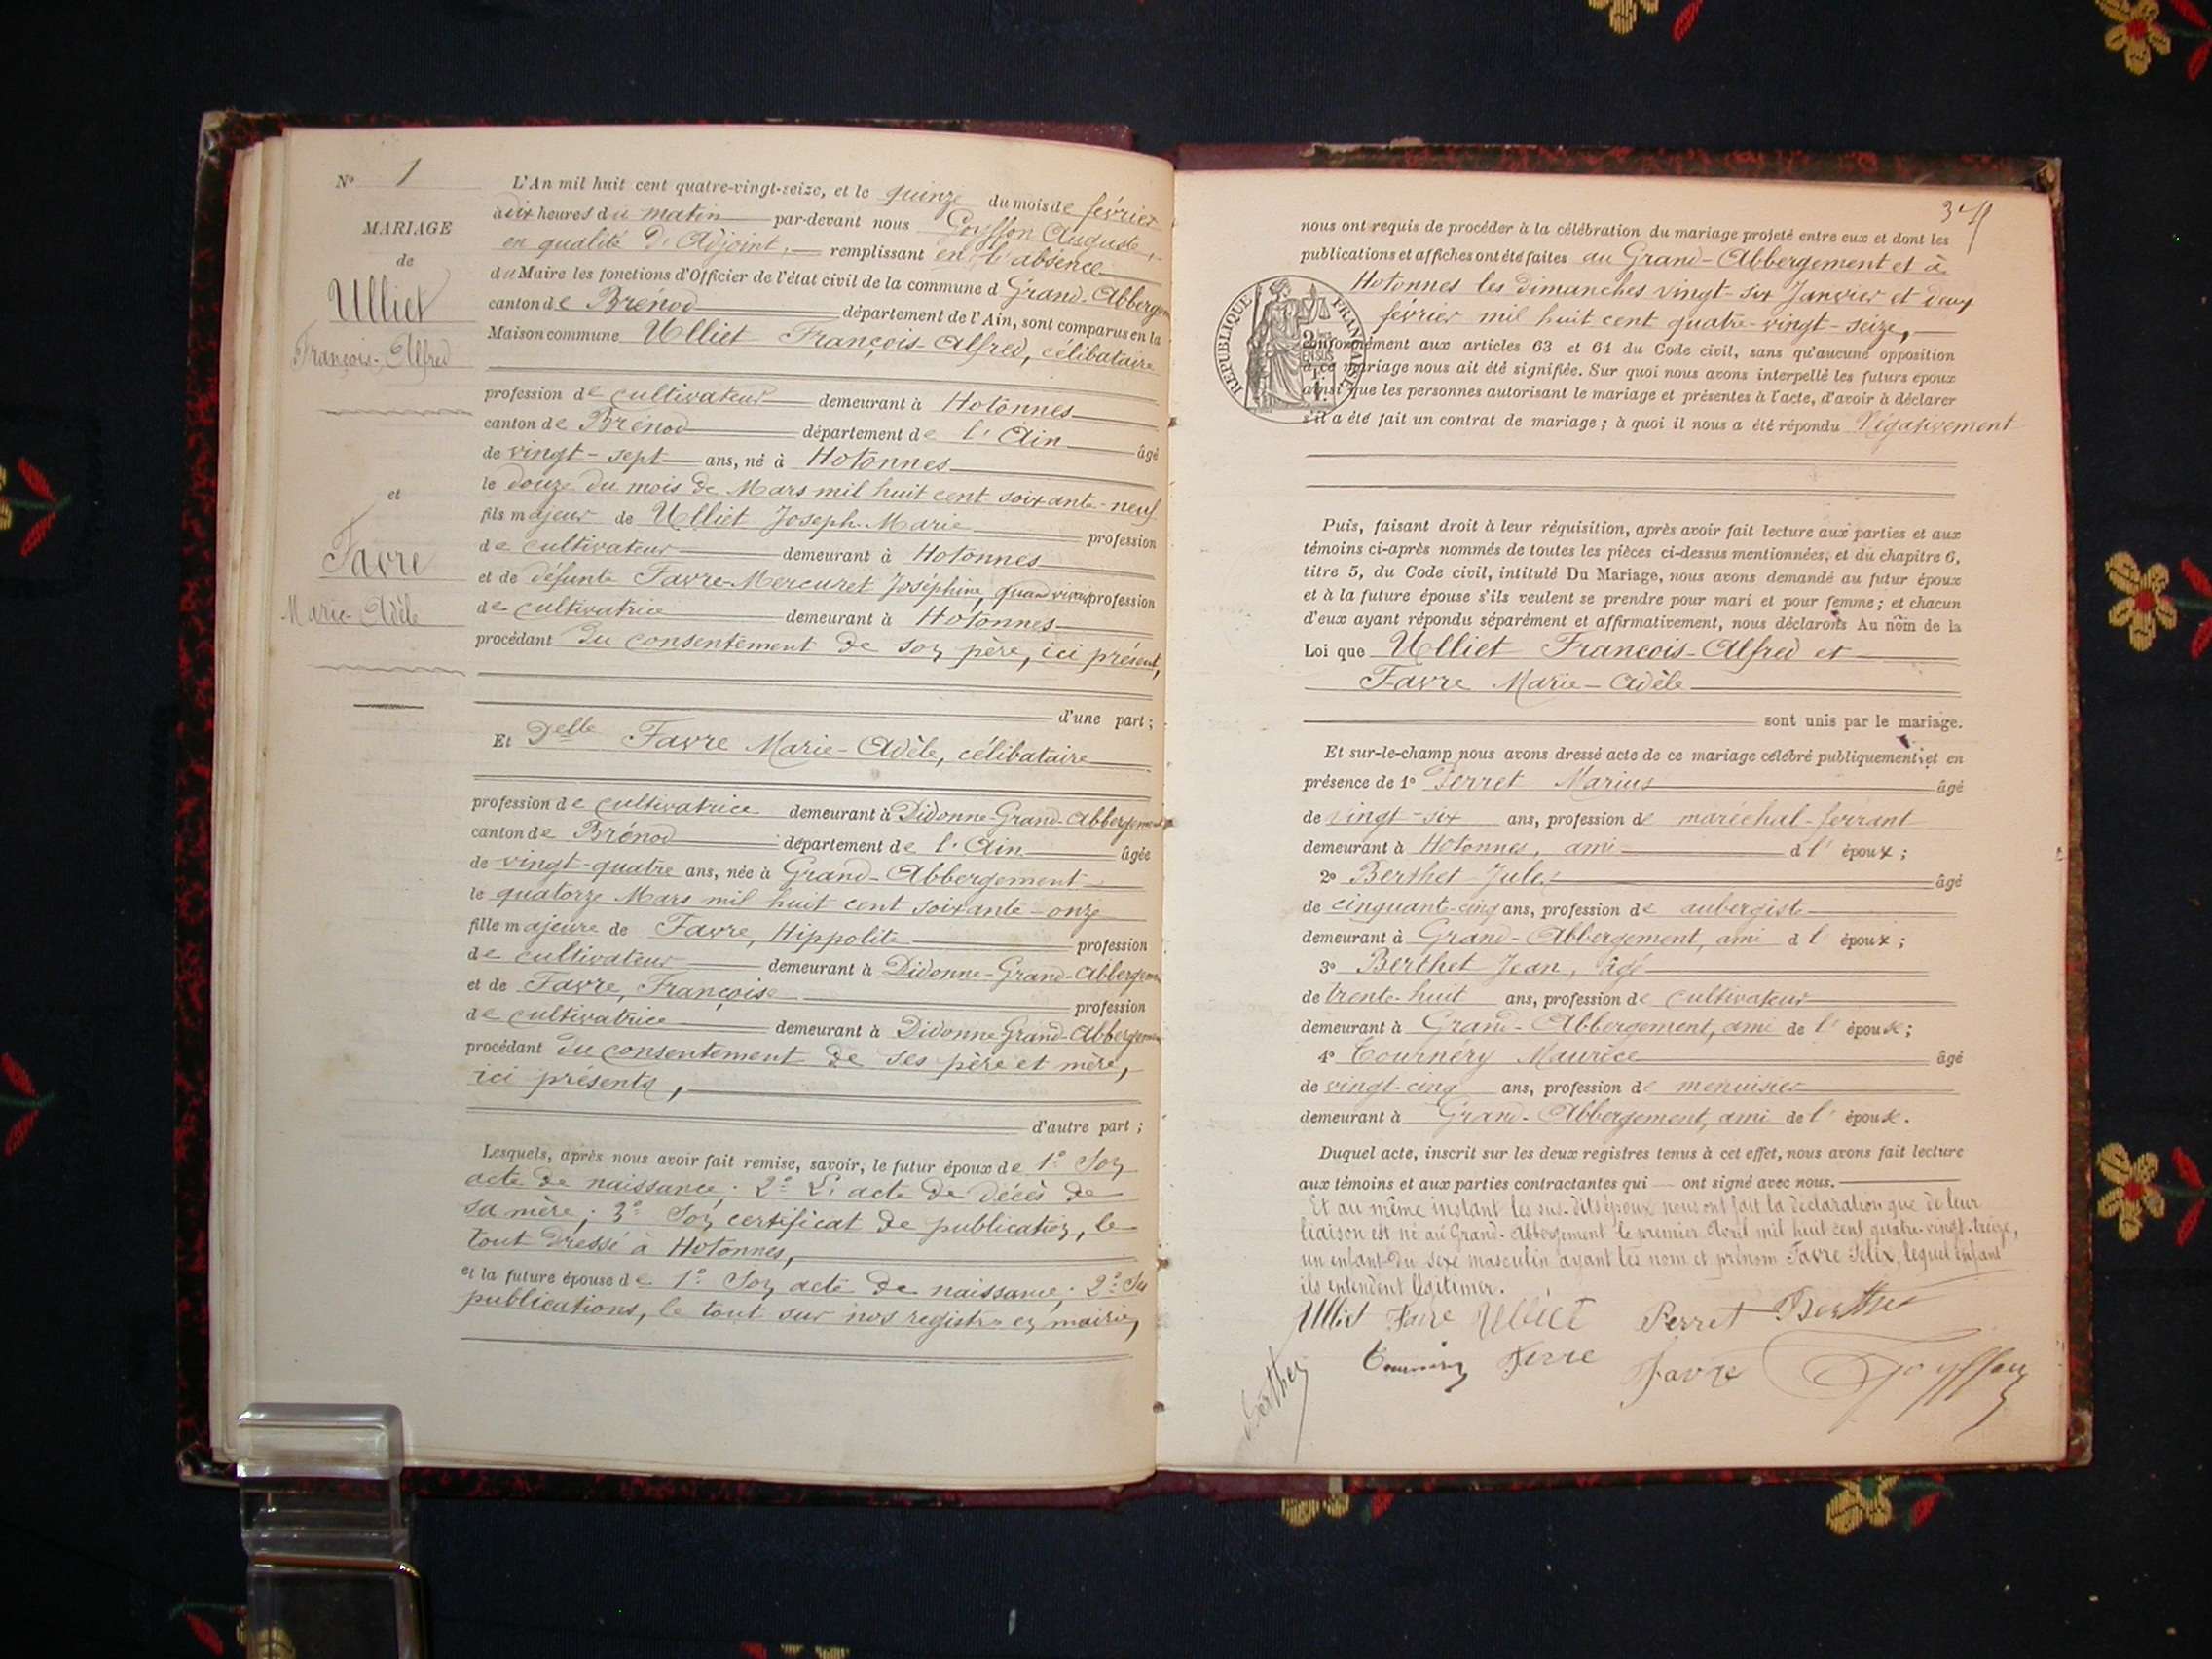 N° 1
MARIAGE
de
Ulliet
François-Alfred
et
Favre
Marie-Adèle
L'An mil huit cent quatre-vingt-seize, et le quinze du mois de février
à dix heures du matin par-devant nous Goyffon Auguste,
en qualité d'Adjoint, remplissant en l'absence
du Maire les fonctions d'Officier de l'état civil de la commune d Grand-Abberg
canton de Brénod département de l'Ain, sont comparus en la
Maison commune Ulliet François-Alfred, célibataire
profession de cultivateur demeurant à Hotonnes
canton de Brénod département de l'Ain âgé
de vingt-sept ans, né à Hotonnes
le douze du mois de Mars mil huit cent soixante-neuf
fils majeur de Ulliet Joseph-Marie profession
de cultivateur demeurant à Hotonnes
et de défunte Favre-Mercuret Joséphine, quand vivait profession
de cultivatrice demeurant à Hotonnes
procédant du consentement de son père, ici présent,
d'une part ;
Et Delle Favre Marie-Adèle, célibataire
profession de cultivatrice demeurant à Didonne-Grand-Abbergement
canton de Brénod département de l'Ain âgée
de vingt-quatre ans, née à Grand-Abbergement
le quatorze Mars mil huit cent soixante-onze
fille majeure de Favre, Hippolite profession
de cultivateur demeurant à Didonne-Grand-Abbergem
et de Favre, Françoise profession
de cultivatrice demeurant à Didonne Grand-Abbergem
procédant du consentement de ses père et mère,
ici présents,
d'autre part ;
Lesquels, après nous avoir fait remise, savoir, le futur époux de 1° Son
acte de naissance ; 2° L'acte de décès de
sa mère ; 3° Son certificat de publication, le
tout dressé à Hotonnes,
et la future épouse de 1° Son acte de naissance ; 2° Ses
publications, le tout sur nos registres en mairie,
nous ont requis de procéder à la célébration du mariage projeté entre eux et dont les
publications et affiches ont été faites au Grand-Abbergement et à
Hotonnes les dimanches vingt-six Janvier et deux
février mil huit cent quatre-vingt-seize,
REPUBLIQUE FRANCAISE
conformément aux articles 63 et 64 du Code civil, sans qu'aucune opposition
à ce mariage nous ait été signifiée. Sur quoi nous avons interpellé les futurs époux
ainsi que les personnes autorisant le mariage et présentes à l'acte, d'avoir à déclarer
s'il a été fait un contrat de mariage ; à quoi il nous a été répondu Négativement
Puis, faisant droit à leur réquisition, après avoir fait lecture aux parties et aux
témoins ci-après nommés de toutes les pièces ci-dessus mentionnées, et du chapitre 6,
titre 5, du Code civil, intitulé Du Mariage, nous avons demandé au futur époux
et à la future épouse s'ils veulent se prendre pour mari et pour femme ; et chacun
d'eux ayant répondu séparément et affirmativement, nous déclarons Au nom de la
Loi que Ulliet François-Alfred et
Favre Marie-Adèle
sont unis par le mariage.
Et sur-le-champ nous avons dressé acte de ce mariage célébré publiquement et en
présence de 1° Perret Marius âgé
de vingt-six ans, profession de maréchal-ferrant
demeurant à Hotonnes, ami d l' époux ;
2° Berthet Jules âgé
de cinquante-cinq ans, profession de aubergiste
demeurant à Grand-Abbergement, ami d l' époux ;
3° Berthet Jean, âgé
de trente-huit ans, profession de cultivateur
demeurant à Grand-Abbergement, ami de l' épouse ;
4° Tournéry Maurice âgé
de vingt-cinq ans, profession de menuisier
demeurant à Grand-Abbergement, ami de l' épouse.
Duquel acte, inscrit sur les deux registres tenus à cet effet, nous avons fait lecture
aux témoins et aux parties contractantes qui ont signé avec nous.
Et au même instant les sus-dits époux nous ont fait la déclaration que de leur
liaison est né au Grand-Abbergement le premier Avril mil huit cent quatre-vingt-treize,
un enfant du sexe masculin ayant les nom et prénom Favre Félix, lequel enfant
ils entendent légitimer.
Ulliet Favre Ulliet Perret Berthet
Favre Favre Goyffon
Berthet